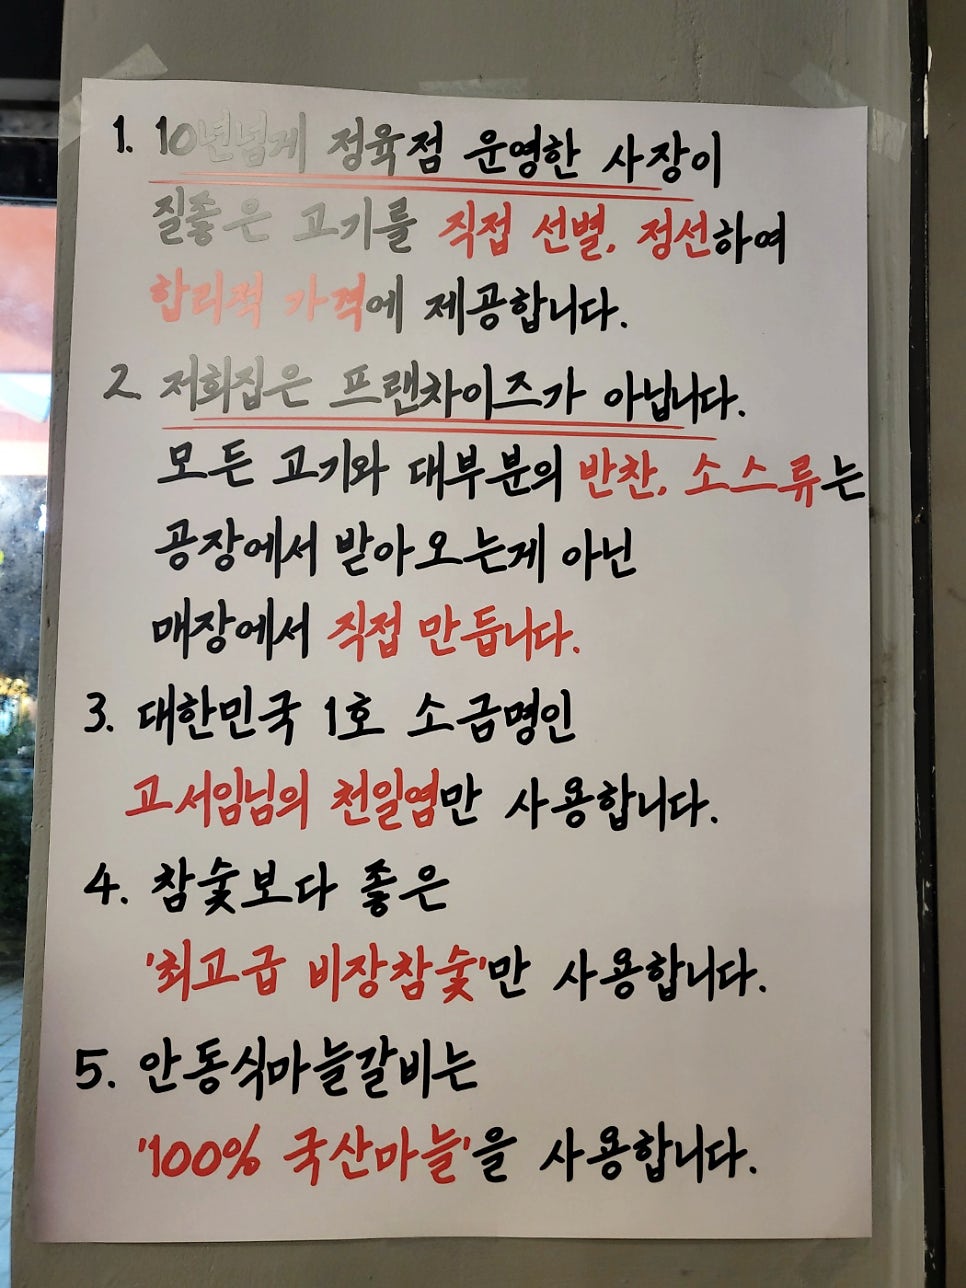 1. 10년넘게 정육점 운영한 사장이
질좋은 고기를 직접 선별, 정선하여
합리적 가격에 제공합니다.
2. 저희집은 프랜차이즈가 아닙니다.
모든 고기와 대부분의 반찬, 소스류는
공장에서 받아오는게 아닌
매장에서 직접 만듭니다.
3. 대한민국 1호 소금명인
고서임님의 천일염만 사용합니다.
4. 참숯보다 좋은
'최고급 비장참숯'만 사용합니다.
5. 안동식마늘갈비는
'100% 국산마늘'을 사용합니다.